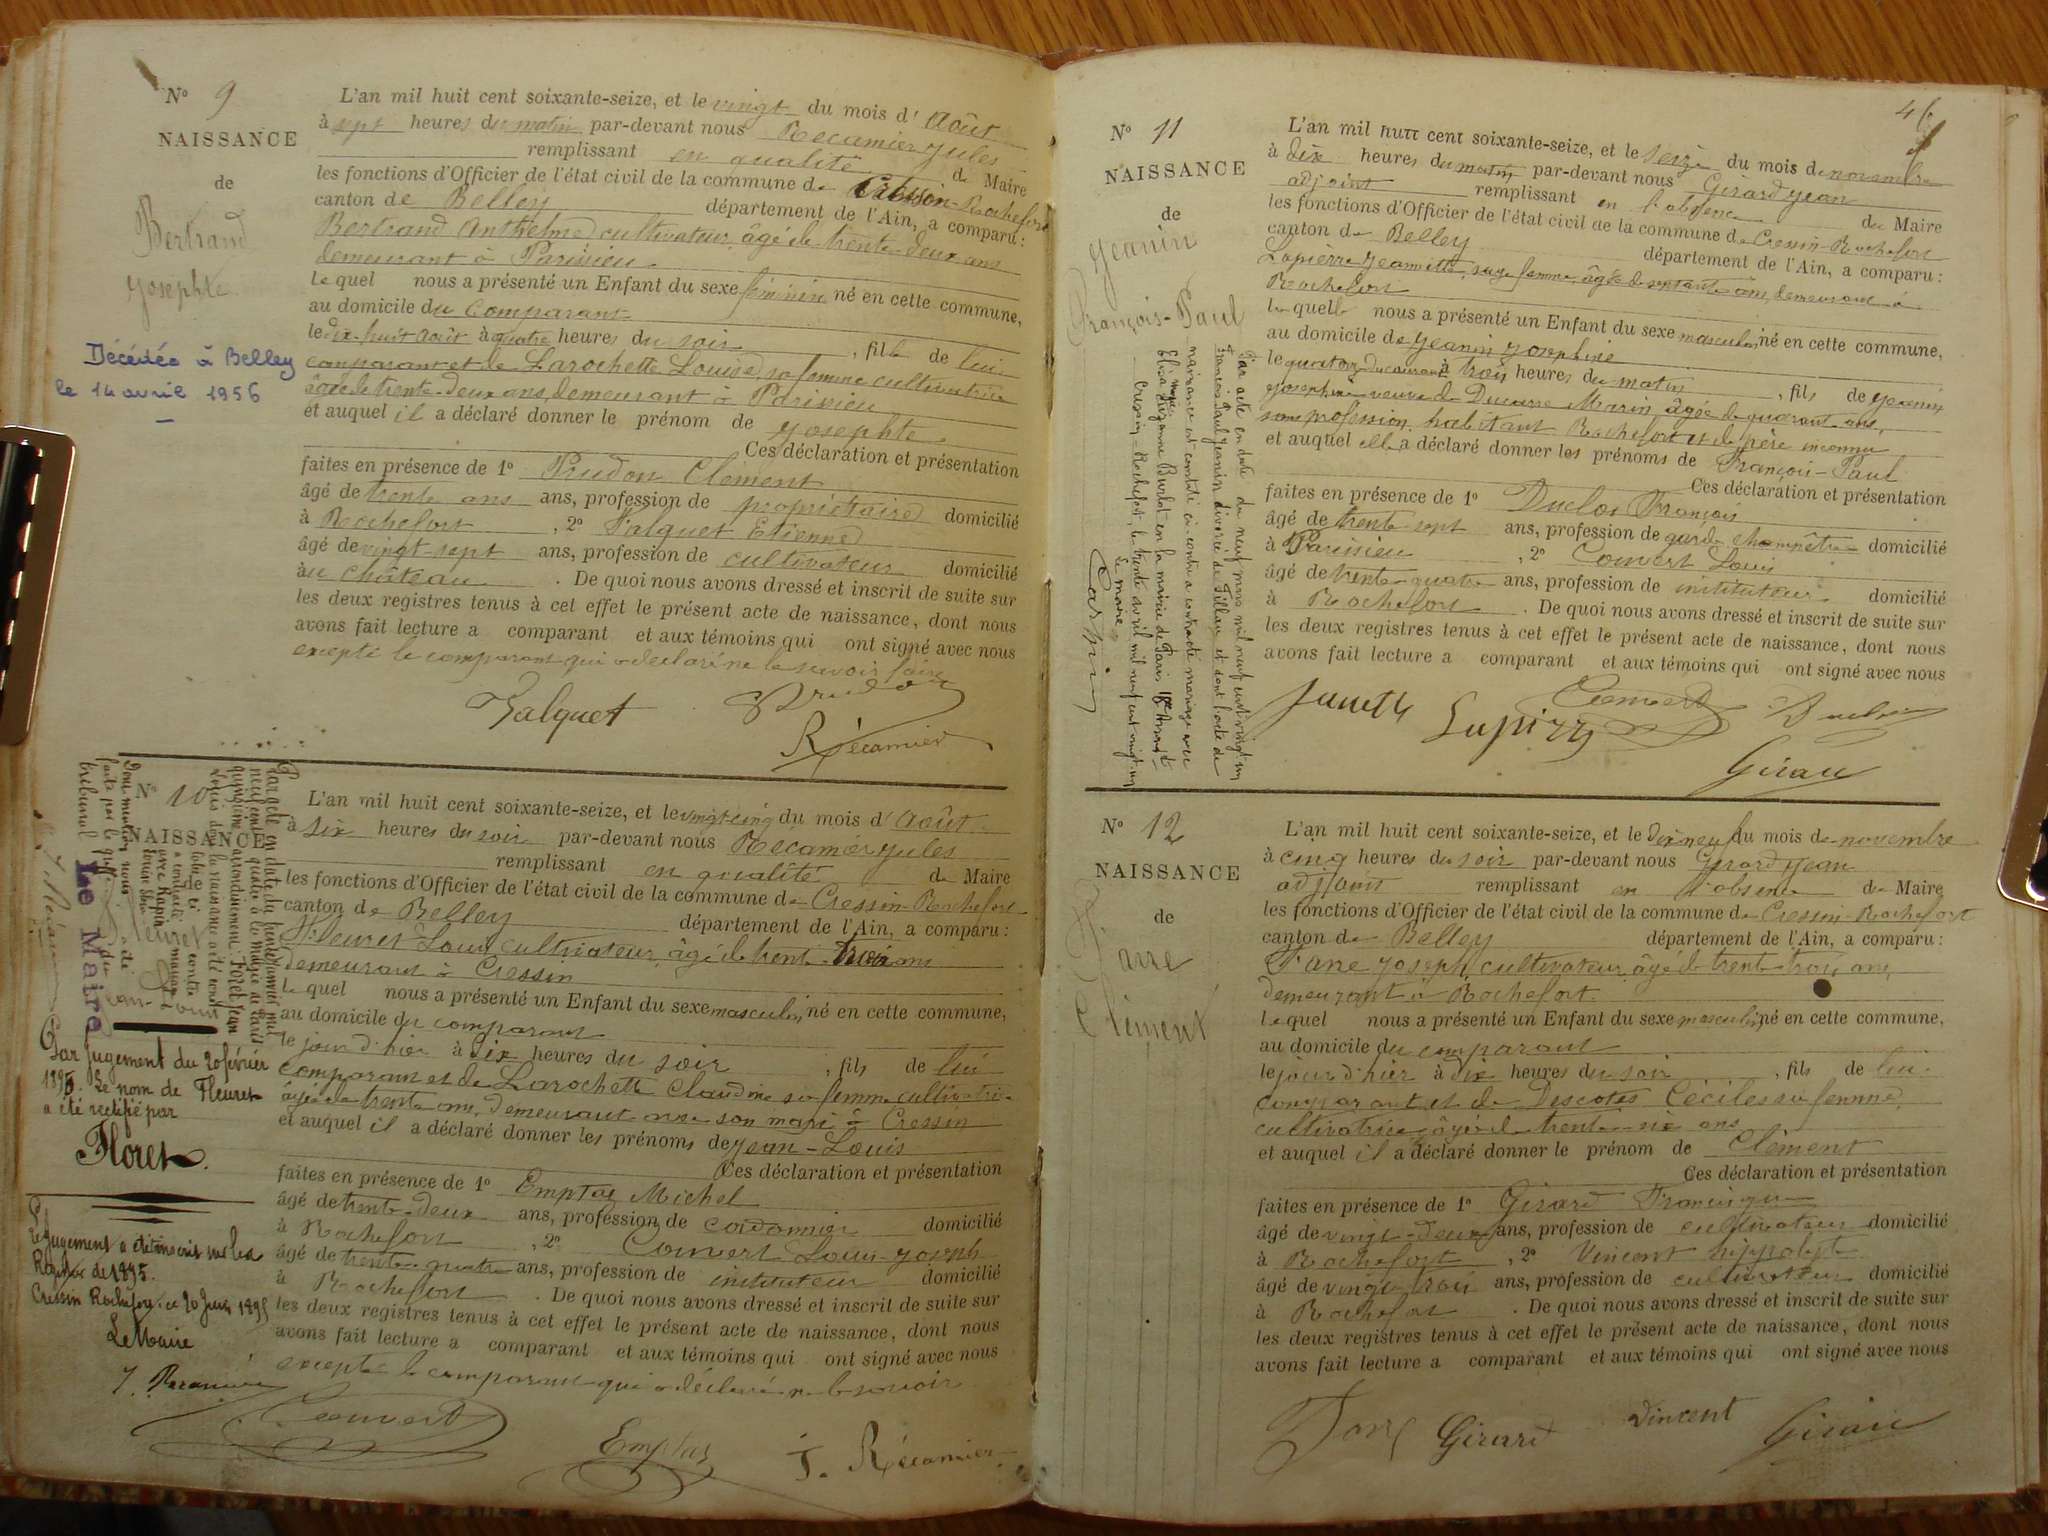 N° 9
NAISSANCE
de
Bertrand
Josephte
Décédée à Belley
le 14 avril 1956
L'an mil huit cent soixante-seize, et le vingt du mois d' Août
à sept heures du matin par-devant nous Recamier Jules
remplissant en qualité de Maire
les fonctions d'Officier de l'état civil de la commune de Cressin-Rochefort
canton de Belley département de l'Ain, a comparu :
Bertrand Anthelme cultivateur, âgé de trente-deux ans
demeurant à Parissieu
le quel nous a présenté un Enfant du sexe féminin né en cette commune,
au domicile du comparant
le dix-huit Août à quatre heures du soir , fille de lui
comparant et de Larochette Louise, sa femme cultivatrice
âgée de trente-deux ans, demeurant à Parissieu
et auquel il a déclaré donner le prénom de Josephte
Ces déclaration et présentation
faites en présence de 1° Prudon Clément
âgé de trente ans ans, profession de propriétaire domicilié
à Rochefort , 2° Falquet Etienne
âgé de vingt-sept ans, profession de cultivateur domicilié
au château . De quoi nous avons dressé et inscrit de suite sur
les deux registres tenus à cet effet le présent acte de naissance, dont nous
avons fait lecture a comparant et aux témoins qui ont signé avec nous
excepté le comparant qui a déclaré ne le savoir faire
Falquet Prudon
Récamier
N° 10
NAISSANCE
de
Fleuret
Jean-Louis
Le Maire
Par jugement du 20 février
1895. Le nom de Fleuret
a été rectifié par
Floret.
Le jugement a été inscrit sur les
Registre de 1895.
Cressin Rochefort ce 20 Juin 1895
Le Maire
J. Récamier
L'an mil huit cent soixante-seize, et le vingt-cinq du mois d' Août
à six heures du soir par-devant nous Récamier Jules
remplissant en qualité de Maire
les fonctions d'Officier de l'état civil de la commune de Cressin-Rochefort
canton de Belley département de l'Ain, a comparu :
Fleuret Louis cultivateur, âgé de trente-trois ans
demeurant à Cressin
le quel nous a présenté un Enfant du sexe masculin né en cette commune,
au domicile du comparant
le jour d'hier à dix heures du soir , fils de lui
comparant et de Larochette Claudine sa femme cultivatrice
âgée de trente ans, demeurant avec son mari à Cressin
et auquel il a déclaré donner les prénoms de Jean-Louis
Ces déclaration et présentation
faites en présence de 1° Emptaz Michel
âgé de trente-deux ans, profession de cordonnier domicilié
à Rochefort , 2° Convert Louis-Joseph
âgé de trente-quatre ans, profession de instituteur domicilié
à Rochefort . De quoi nous avons dressé et inscrit de suite sur
les deux registres tenus à cet effet le présent acte de naissance, dont nous
avons fait lecture a comparant et aux témoins qui ont signé avec nous
excepté le comparant qui a déclaré ne le savoir
Convert Emptaz J. Récamier
46
N° 11
NAISSANCE
de
Jeanin
François-Paul
Par acte en date du neuf mars mil neuf cent vingt un
François Paul Jeanin divorcé de Tillau et dont l'acte de
naissance est constaté ci-contre a contracté mariage avec
Elisa Suzanne Burlot en la mairie de Paris 18e Arrondt
Cressin-Rochefort, le trente avril mil neuf cent vingt-un
Le maire
L'an mil huit cent soixante-seize, et le seize du mois de novembre
à dix heures du matin par-devant nous Girard Jean
adjoint remplissant en l'absence du Maire
les fonctions d'Officier de l'état civil de la commune de Cressin-Rochefort
canton de Belley département de l'Ain, a comparu :
Lapierre Jeannette, sage femme, âgée de soixante ans, demeurant à
Rochefort
la quelle nous a présenté un Enfant du sexe masculin né en cette commune,
au domicile de Jeanin Josephine
le quatorze du courant à trois heures du matin , fils de Jeanin
Josephine veuve de Ducarre Marin, âgée de quarante ans,
sans profession habitant Rochefort et de père inconnu
et auquel elle a déclaré donner les prénoms de François-Paul
Ces déclaration et présentation
faites en présence de 1° Duclos François
âgé de trente-sept ans, profession de garde champêtre domicilié
à Parissieu , 2° Convert Louis
âgé de trente-quatre ans, profession de instituteur domicilié
à Rochefort . De quoi nous avons dressé et inscrit de suite sur
les deux registres tenus à cet effet le présent acte de naissance, dont nous
avons fait lecture a comparant et aux témoins qui ont signé avec nous
Convert Duclos
Girard
N° 12
NAISSANCE
de
Favre
Clément
L'an mil huit cent soixante-seize, et le dix neuf du mois de novembre
à cinq heures du soir par-devant nous Girard Jean
adjoint remplissant en l'absence du Maire
les fonctions d'Officier de l'état civil de la commune de Cressin-Rochefort
canton de Belley département de l'Ain, a comparu :
Favre Joseph, cultivateur, âgé de trente-trois ans,
demeurant à Rochefort.
le quel nous a présenté un Enfant du sexe masculin né en cette commune,
au domicile du comparant
le jour d'hier à dix heures du soir , fils de lui
comparant et de Descotes Céciles sa femme,
cultivatrice, âgée de trente-six ans
et auquel il a déclaré donner le prénom de Clément
Ces déclaration et présentation
faites en présence de 1° Girard Francisque
âgé de vingt-deux ans, profession de cultivateur domicilié
à Rochefort , 2° Vincent Hippolyte
âgé de vingt-trois ans, profession de cultivateur domicilié
à Rochefort . De quoi nous avons dressé et inscrit de suite sur
les deux registres tenus à cet effet le présent acte de naissance, dont nous
avons fait lecture a comparant et aux témoins qui ont signé avec nous
Girard Vincent Girard